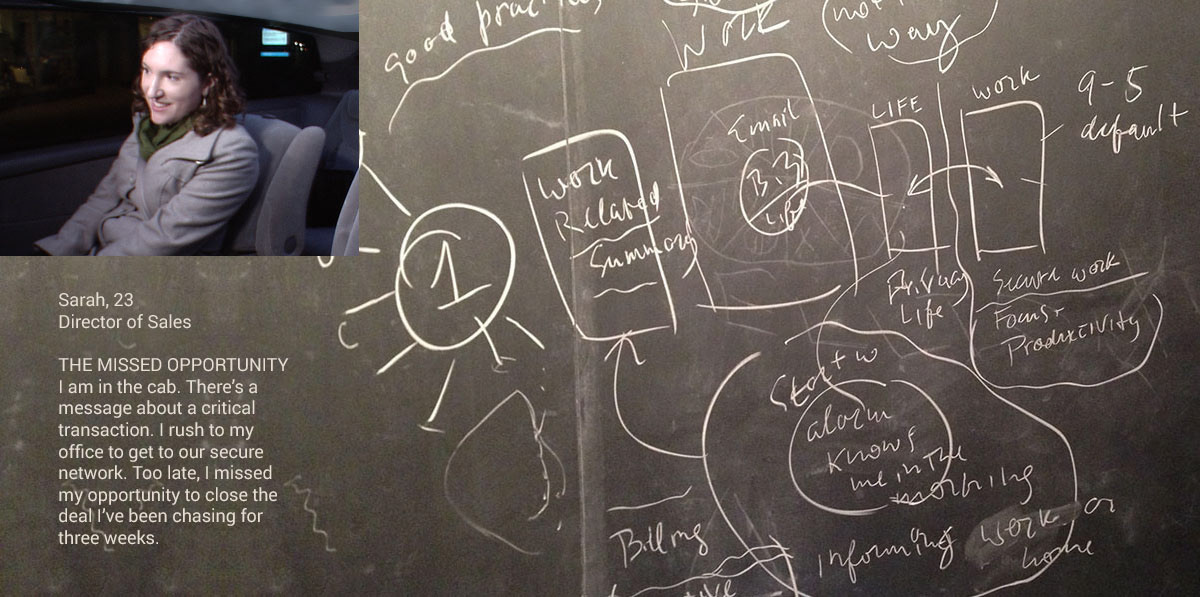 Sarah, 23
Director of Sales
THE MISSED OPPORTUNITY
I am in the cab. There's a
message about a critical
transaction. I rush to my
office to get to our secure
network. Too late, I missed
my opportunity to close the
deal I've been chasing for
three weeks.
good
way
1
WORK
Related
Summary
Email
LIFE
WORK
9-5
default
Life
Secure work
Focus +
Productivity
Start w
alarm
knows
me in the
morning
Informing work or
home
Billing